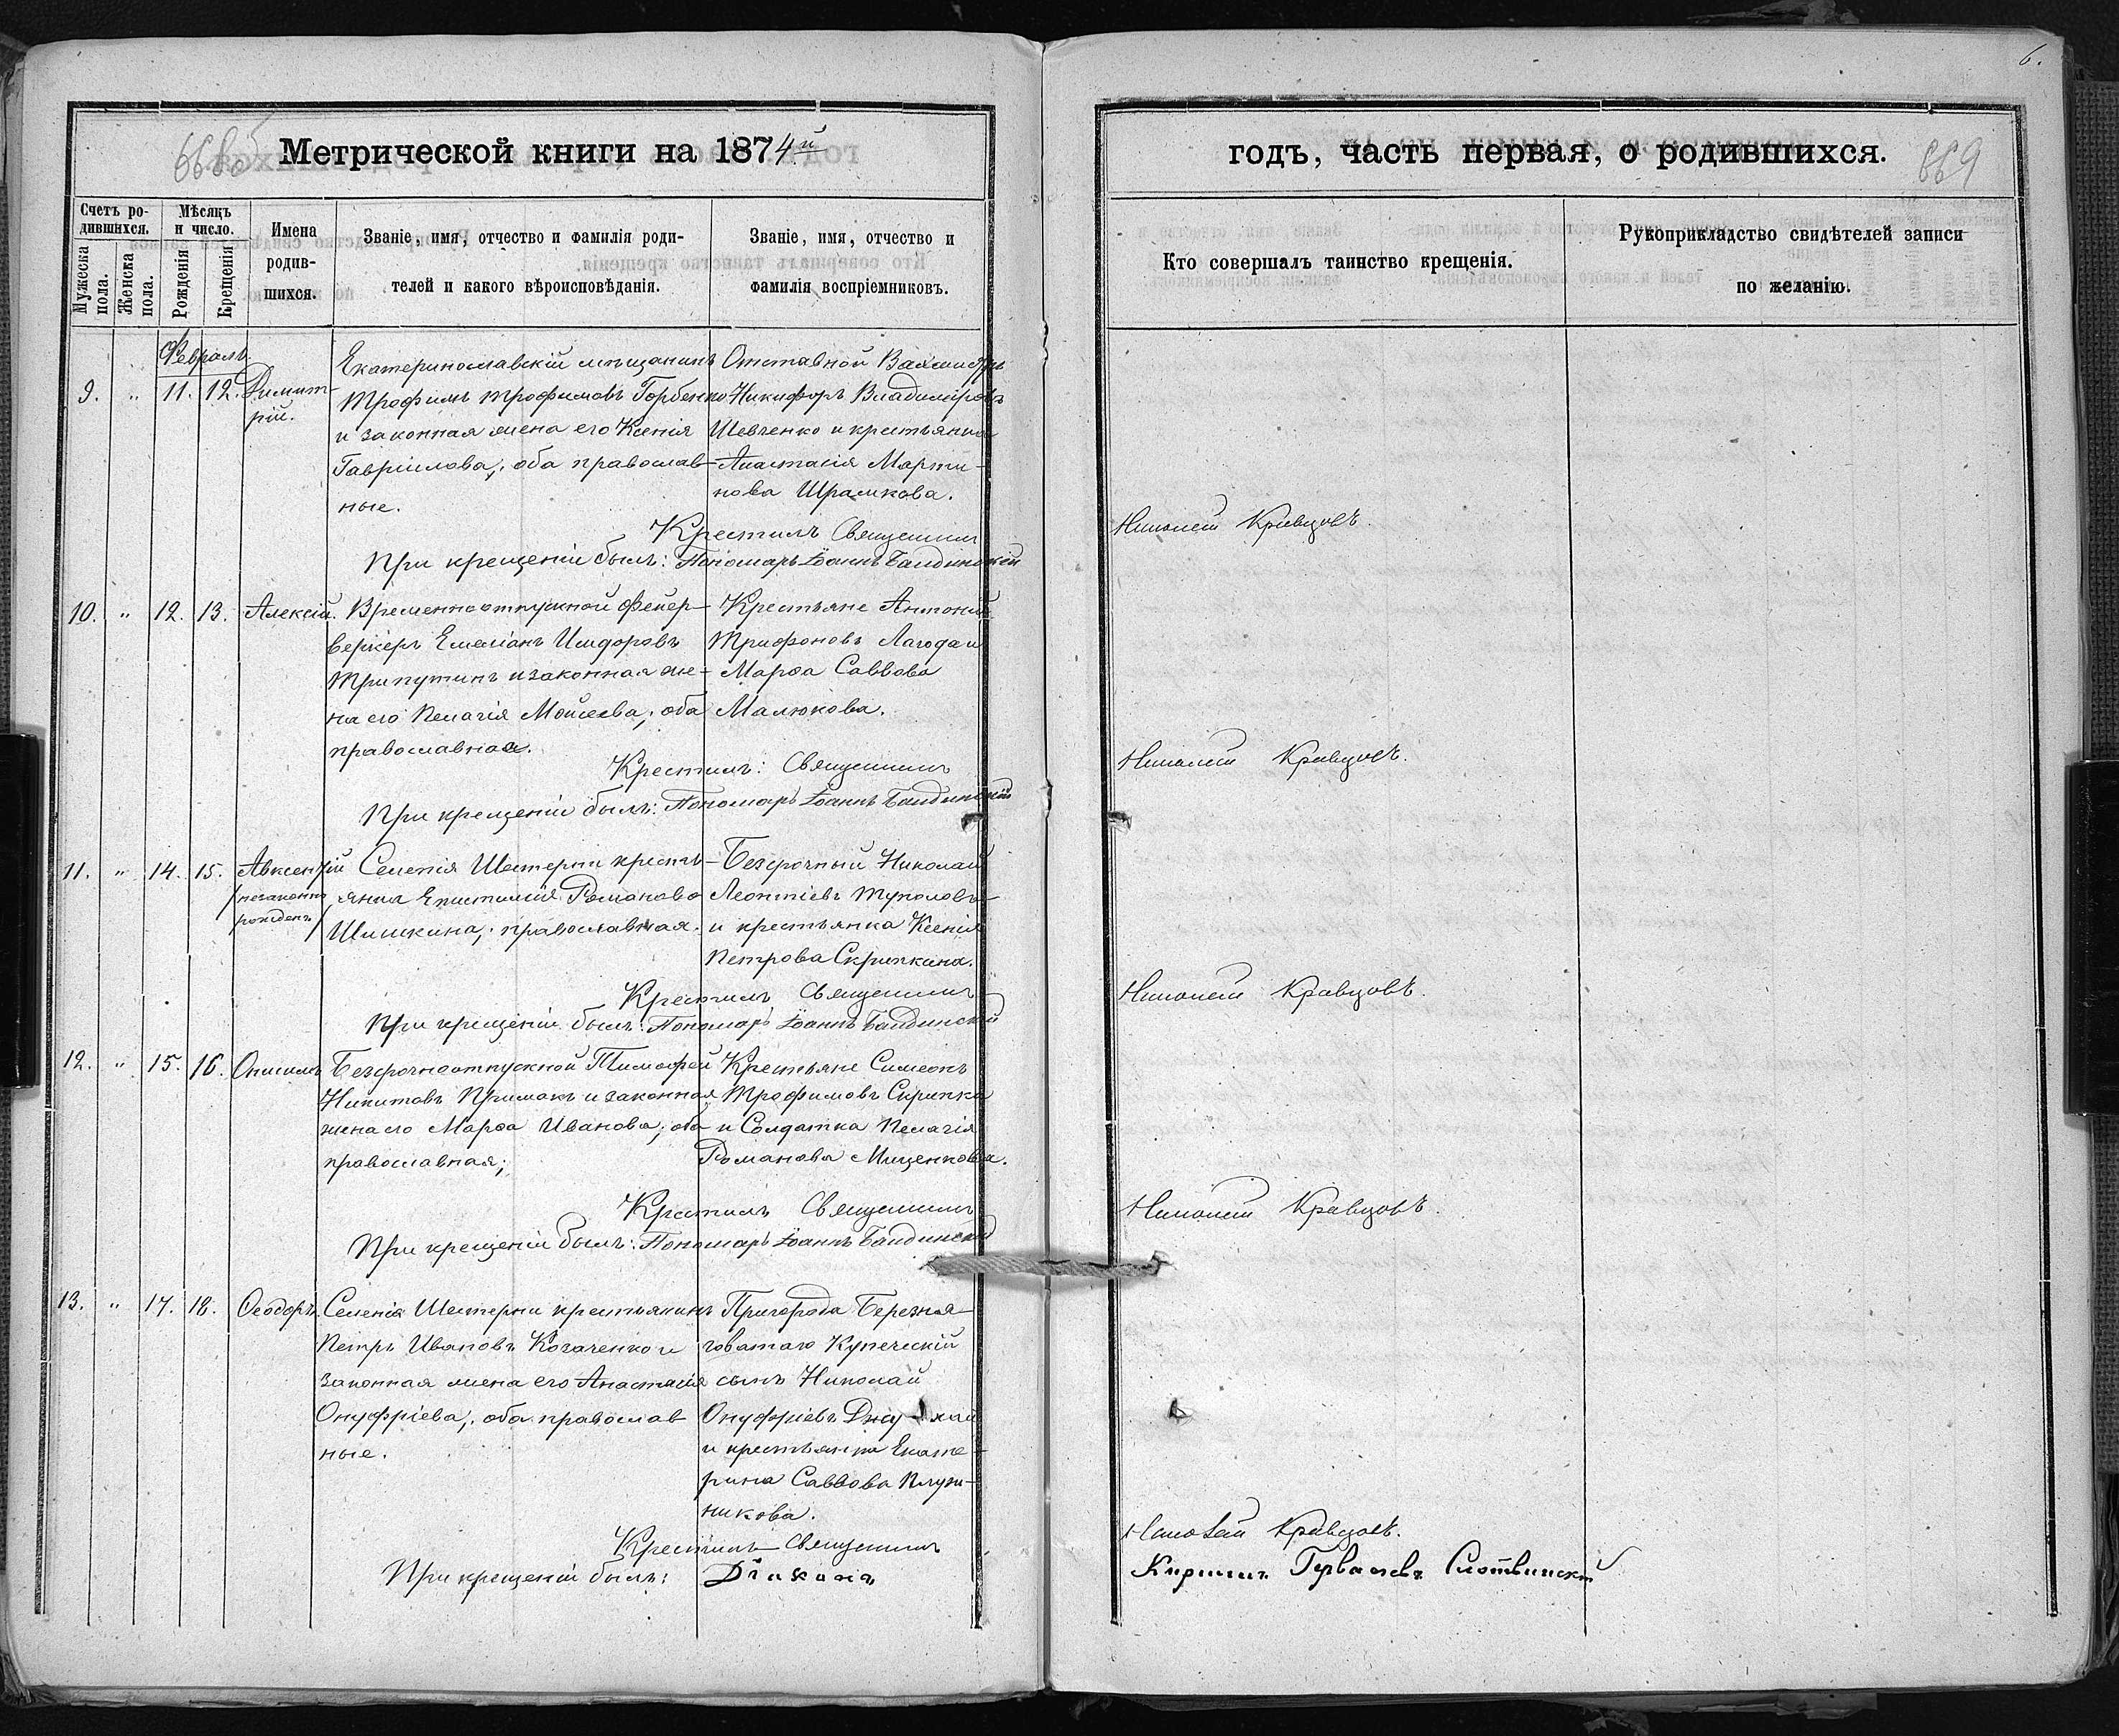 6.
Метрической книги на 1874й
годъ, часть первая, о родившихся.
669
Счетъ ро-
дившихся.
Мужеска
пола.
Женска
пола.
Мѣсяцъ
и число.
Рожденія
Крещенія
Имена
родив-
шихся.
Званіе, имя, отчество и фамилія роди-
телей и какого вѣроисповѣданія.
Званіе, имя, отчество и
фамилія воспріемниковъ.
Кто совершалъ таинство крещенія.
Рукоприкладство свидѣтелей записи
по желанію.
Февраль
9. " 11. 12. Димит-
рій.
Екатеринославскій мѣщанинъ
Трофимъ Трофимовъ Горбенко
и законная жена его Ксенія
Гавріилова; оба православ-
ные.
Отставной Вахмистръ
Никифоръ Владиміровъ
Шевченко и крестьянка
Анастасія Марти-
нова Шрамкова.
Крестилъ Священникъ
Николай Кравцовъ.
При крещеніи былъ: Пономарь Іоаннъ Бандинскій
10. " 12. 13. Алексій.
Временноотпускной Фейер-
веркеръ Емеліанъ Исидоровъ
Трипутинъ и законная же-
на его Пелагія Моисеева; оба
православная.
Крестьяне Антоній
Трифоновъ Лагода и
Марѳа Саввова
Малюкова.
Крестилъ: Священникъ
Николай Кравцовъ.
При крещеніи былъ: Пономарь Іоаннъ Бандинскій
11. " 14. 15. Авксентій
/незаконно
рожденъ/
Селенія Шестерни кресть-
янка Епистимія Романова
Шишкина; православная.
Безсрочный Николай
Леонтіевъ Туполовъ
и крестьянка Ксенія
Петрова Скрипкина.
Крестилъ Священникъ
Николай Кравцовъ.
При крещеніи былъ: Пономарь Іоаннъ Бандинскій
12. " 15. 16. Онисимъ
Безсрочноотпускной Тимофей
Никитовъ Примакъ и законная
жена его Марѳа Иванова; оба
православная;
Крестьяне Симеонъ
Трофимовъ Скрипка
и Солдатка Пелагія
Романова Мищенкова.
Крестилъ Священникъ
Николай Кравцовъ.
При крещеніи былъ: Пономарь Іоаннъ Бандинскій
13. " 17. 18. Ѳеодоръ.
Селенія Шестерни крестьянинъ
Петръ Ивановъ Когаченко и
законная жена его Анастасія
Онуфріева; оба православ
ные.
Пригорода Березна-
говатаго Купеческій
сынъ Николай
Онуфріевъ
и крестьянка Екате-
рина Саввова Плуж-
никова.
Крестилъ Священникъ
Николай Кравцовъ.
При крещеніи былъ: Діаконъ
Кириллъ Гервасіевъ Слотвинскій